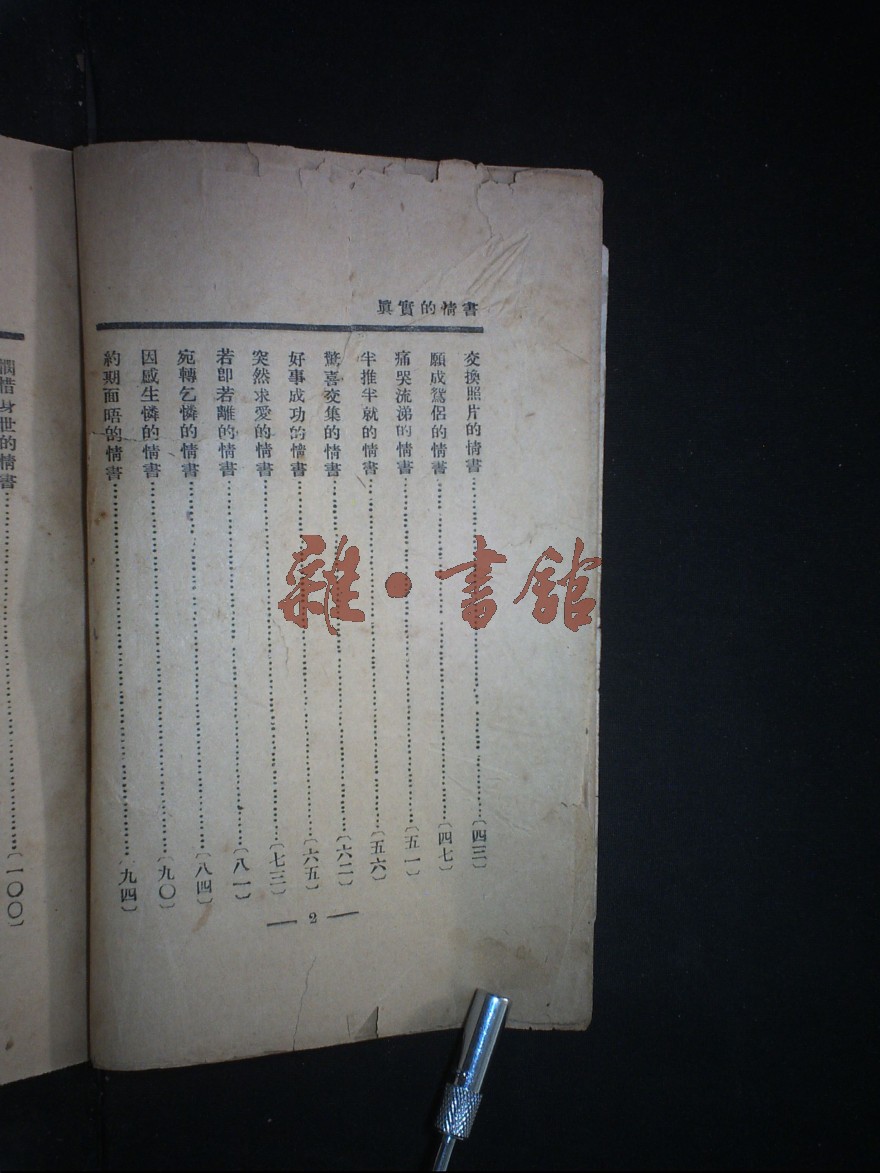 眞實的情書
交換照片的情書……〔四三〕
願成鴛侶的情書……〔四七〕
痛哭流涕的情書……〔五一〕
半推半就的情書……〔五六〕
驚喜交集的情書……〔六二〕
好事成功的情書……〔六五〕
突然求愛的情書……〔七三〕
若卽若離的情書……〔八一〕
宛轉乞憐的情書……〔八四〕
因感生憐的情書……〔九〇〕
約期面晤的情書……〔九四〕
— 2 —
惜身世的情書……〔一〇〇〕
雜·書館